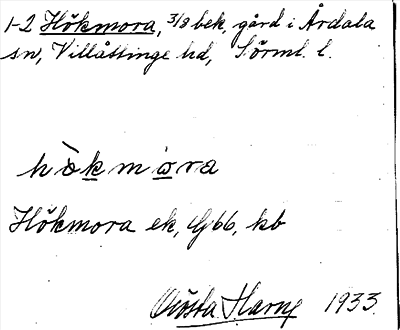 1-2 Hökmora, 3/8 bek, gård i Årdala
sn, Villåttinge hd, Sörml. l.
hö̀kmòra
Hökmora ek, Gj66, kb
Gösta Harng 1933.